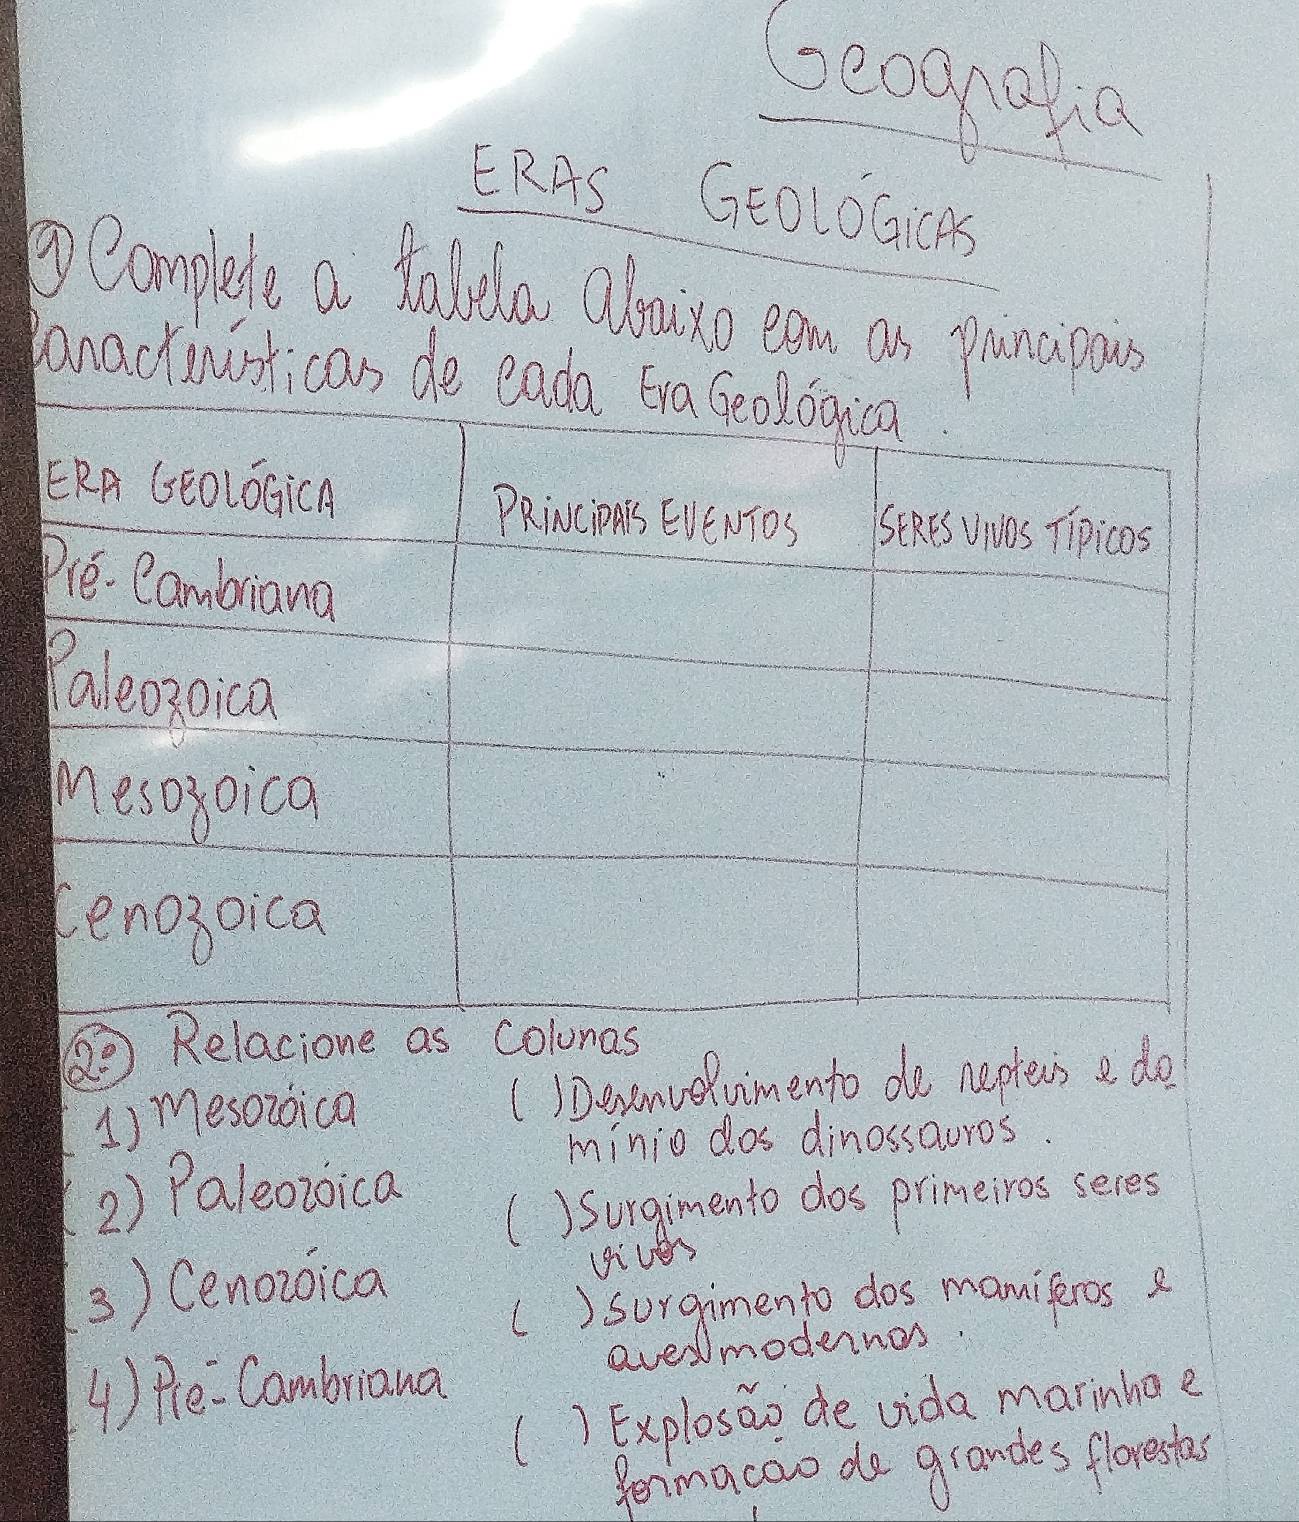 Geografia
ERAS GEOLÓGICAS
① Complete a tabela abaixo com as principais
características de cada Era Geológica.
ERA GEOLÓGICA PRINCIPAIS EVENTOS SERES VIVOS TÍPICOS
Pré-Cambriana
Paleozoica
Mesozoica
Cenozoica
2º) Relacione as colunas
1) Mesozóica ( ) Desenvolvimento de repteis e do
mínio dos dinossauros.
2) Paleozóica ( ) Surgimento dos primeiros seres
vivos
3) Cenozóica ( ) surgimento dos mamíferos e
aves modernas.
4) Pré-Cambriana ( ) Explosão de vida marinha e
formação de grandes florestas